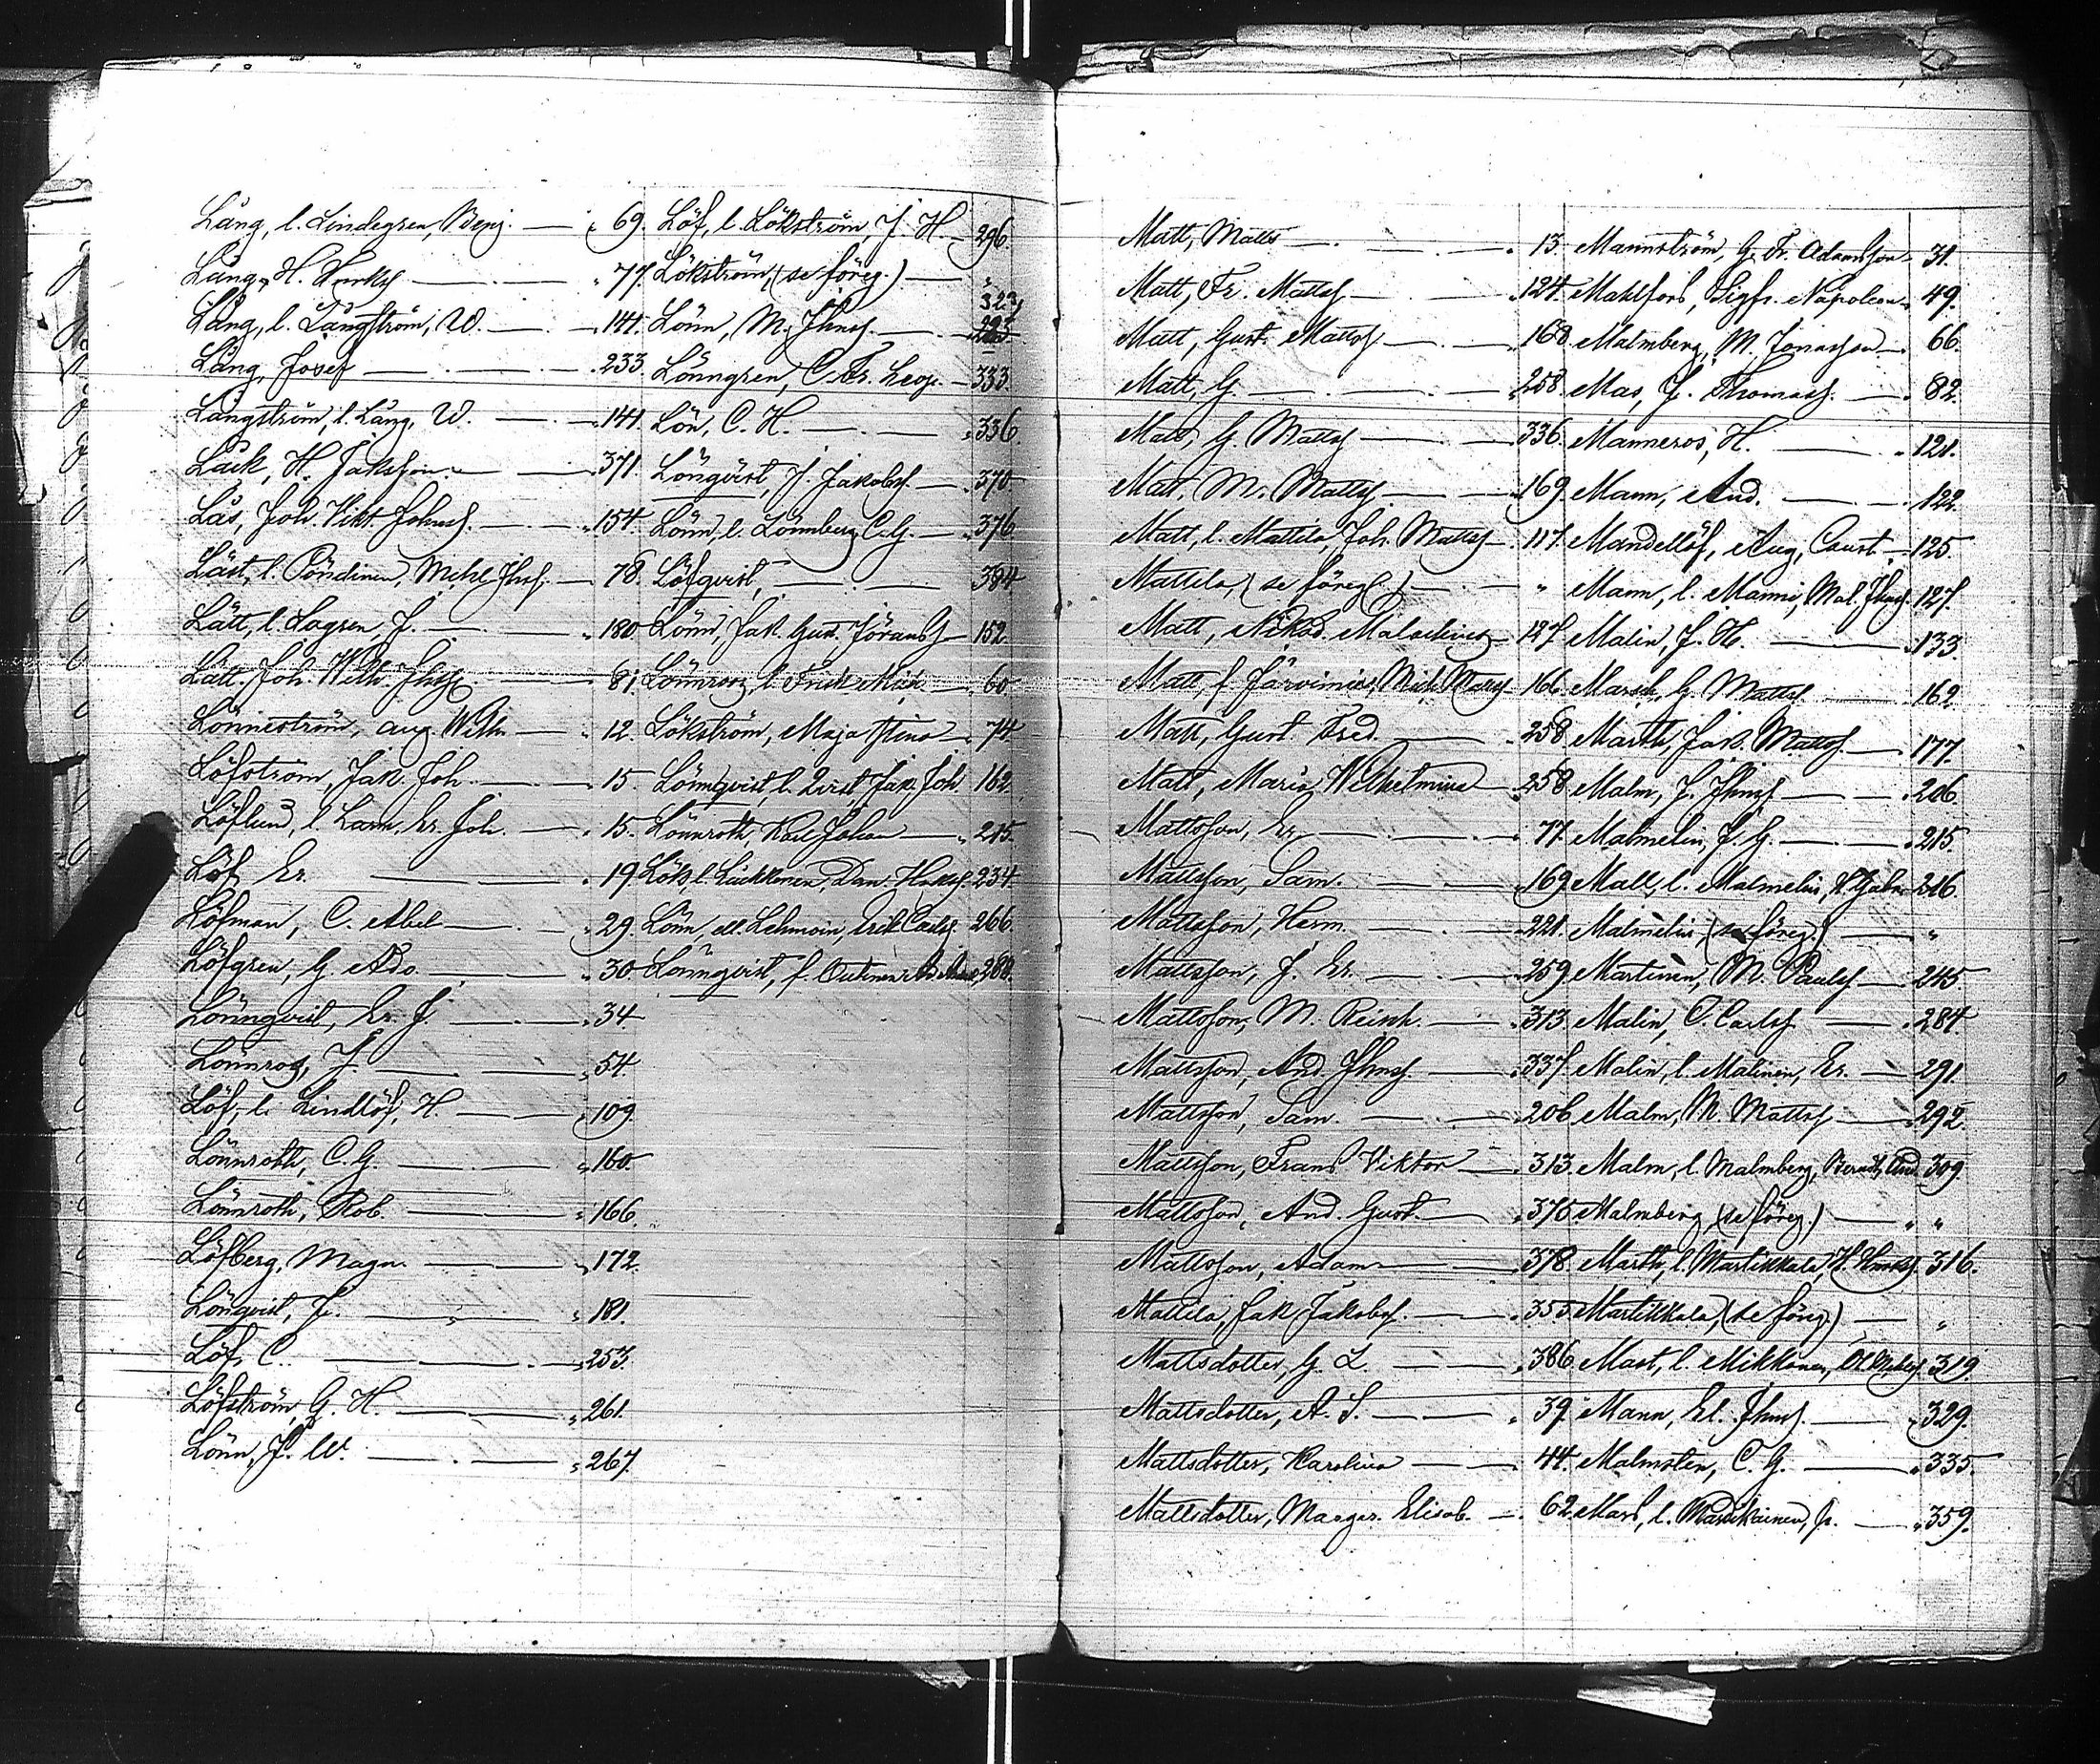 Lång, l. Lindegren, Benj. 69.
Lång, H. Henriks. 77.
Lång, l. Långström, W. 141.
Lång, Josef 233.
Långström, l. Lång, W. 141.
Låck, H. Jaksson 371.
Lås, Joh. Vikt. Johns. 154.
Låst, l. Pöndinen, Mchl Jhnss. 78.
Lätt, l. Lagren, J. 180.
Lätt, Joh. Wilh. Jhss. 81.
Lönneström, Aug. Wilh. 12.
Löfström, Jak. Joh. 15.
Löflund, l. Larm, Er. Joh. 15.
Löf, Er. 19.
Löfman, C. Abel 29.
Löfgren, G. Ado. 30.
Lönnqvist, Er. J. 34
Lönnros, J. 54.
Löf, l. Lindlöf, H. 109.
Lönnroth, C. G. 160.
Lönnroth, Rob. 166.
Löfberg, Magn. 172.
Lönqvist, J. 181.
Löf, C. 253.
Löfström, G. H. 261.
Lönn, J. W. 267.
Löf, l. Lökström, J. H. 296.
Lökström, (se föreg.) "
323
Lönn, M. Jhnss. 293
Lönngren, C. Fr. Leop. 333.
Lön, C. H. 336
Lönqvist, J. Jakobss. 370.
Lönn, l. Lönnberg, C. G. 376
Löfqvist, 384
Lönn, Jak. Gust. Göranss. 152.
Lönnroos, l. Frick, Mich. 60
Lökström, Maja Stina 74
Lönnqvist, l. Qvist, Jak. Joh. 162.
Lönnroth, Karl Johan 245.
Lök, l. Liukkonen, Dan. Hnkss. 234.
Lönn, ell. Lehmoin, Erik Carlss. 266.
Lönnqvist, f. Outinen 288.
Matt, Matts 13.
Matt, Fr. Mattss. 124.
Matt, Gust. Mattss. 168.
Matt, G. 258.
Matt, G. Mattss. 336.
Matt, M. Mattss. 169
Matt, l. Mattila, Joh. Mattss. 117.
Mattila, (se föreg.) "
Matt, Nikod. Malakias. 127
Matt, f. Järvinies, Mich. 166.
Matt, Gust. Fred. 258
Matt, Maria Wilhelmina 258
Mattsson, Er. 77
Mattsson, Sam. 169
Mattsson, Herm. 221.
Mattsson, J. Er. 259
Mattsson, M. Reinh. 313.
Mattsson, And. Jhnss. 337
Mattsson, Sam. 206
Mattsson, Frans Viktor 313.
Mattsson, And. Gust. 375
Mattsson, Adam 378.
Mattila, Jak. Jakobss. 355
Mattsdotter, G. L. 386
Mattsdotter, A. S. 39.
Mattsdotter, Karolina 44.
Mattsdotter, Margar. Elisab. 62
Mannström, G. Fr. Adamsson 31.
Mahlfors, Sigfr. Napoleon 49.
Malmberg, M. Jonasson 66.
Mas, J. Thomass. 82.
Manneros, H. 121.
Mann, And. 122.
Mandellöf, Aug. Const. 125.
Mann, l. Manni, Mal. Jhnss. 127.
Malin, J. H. 133.
Marsch, G. Mattss. 162
Marth, Jak. Mattss. 177.
Malm, J. Jhnss. 206.
Malmelin, J. G. 215.
Mall, l. Malmelin, K. Gabr. 216.
Malmelin, (se föreg.) "
Martinen, M. Paulss. 245
Malin, C. Carlss. 284
Malin, l. Malinen, Er. 291.
Malm, M. Mattss. 292.
Malm, l. Malmberg, Berndt And. 309.
Malmberg (se föreg.) "
Marth, l. Martikkala, H. Hnrkss. 316.
Martikkala, (se föreg.) "
Mast, l. Mikkonen, 319.
Mann, El. Jhnss. 329.
Malmsten, C. G. 335.
Mars, l. Martikainen, J. 359.